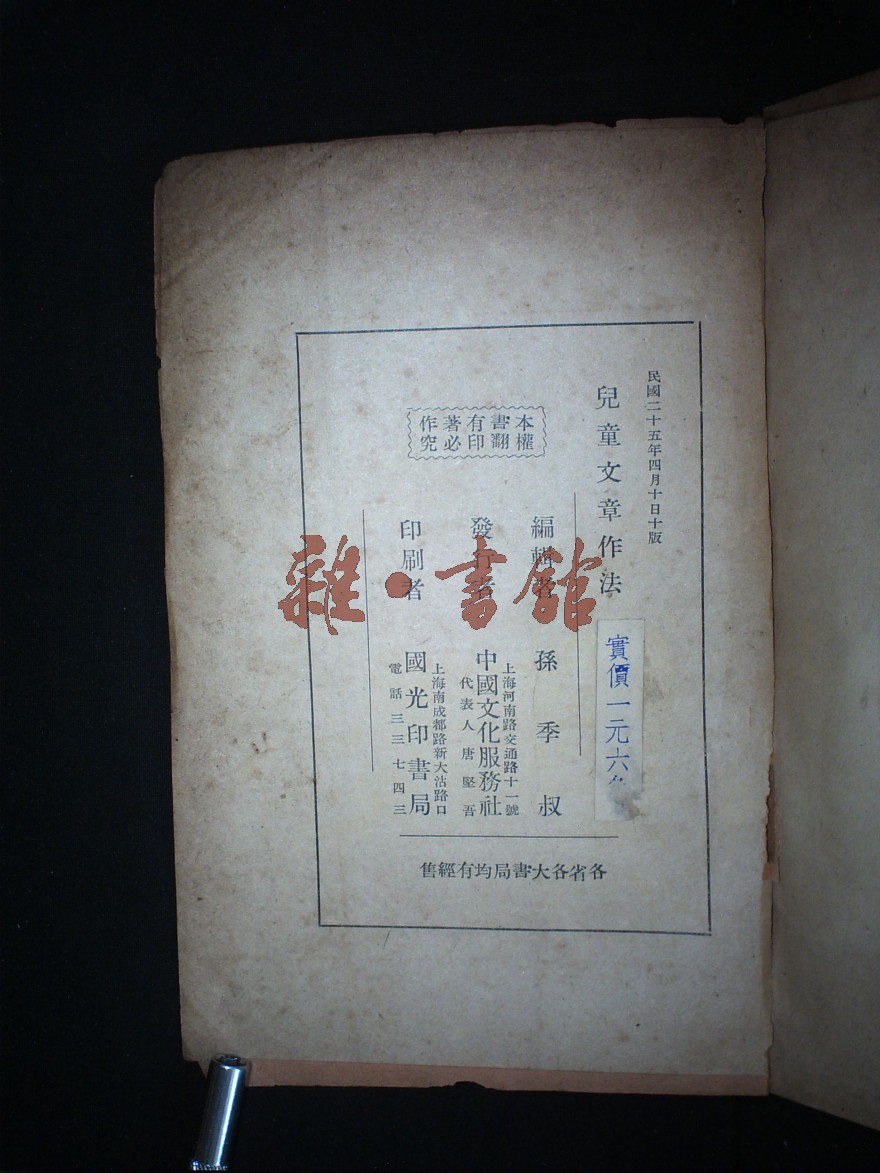 民國二十五年四月十日十版
兒童文章作法
實價一元六
本書有著作
權翻印必究
編輯者 孫季叔
發行者 中國文化服務社
上海河南路交通路十一號
代表人唐堅吾
印刷者 國光印書局
上海南成都路新大沽路口
電話三三七四三
各省各大書局均有經售
雜·書館